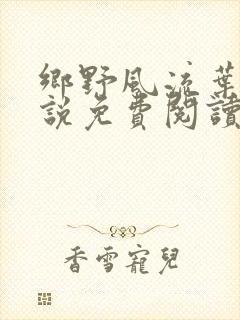 鄉野風流葉
說免費閱讀
香雪寵兒